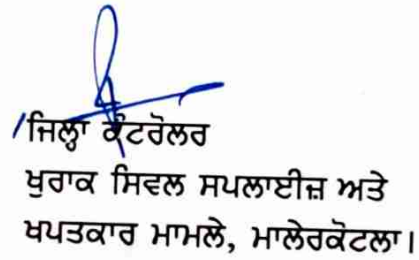 ਜਿਲ੍ਹਾ ਕੰਟਰੋਲਰ
ਖੁਰਾਕ ਸਿਵਲ ਸਪਲਾਈਜ਼ ਅਤੇ
ਖਪਤਕਾਰ ਮਾਮਲੇ, ਮਾਲੇਰਕੋਟਲਾ।